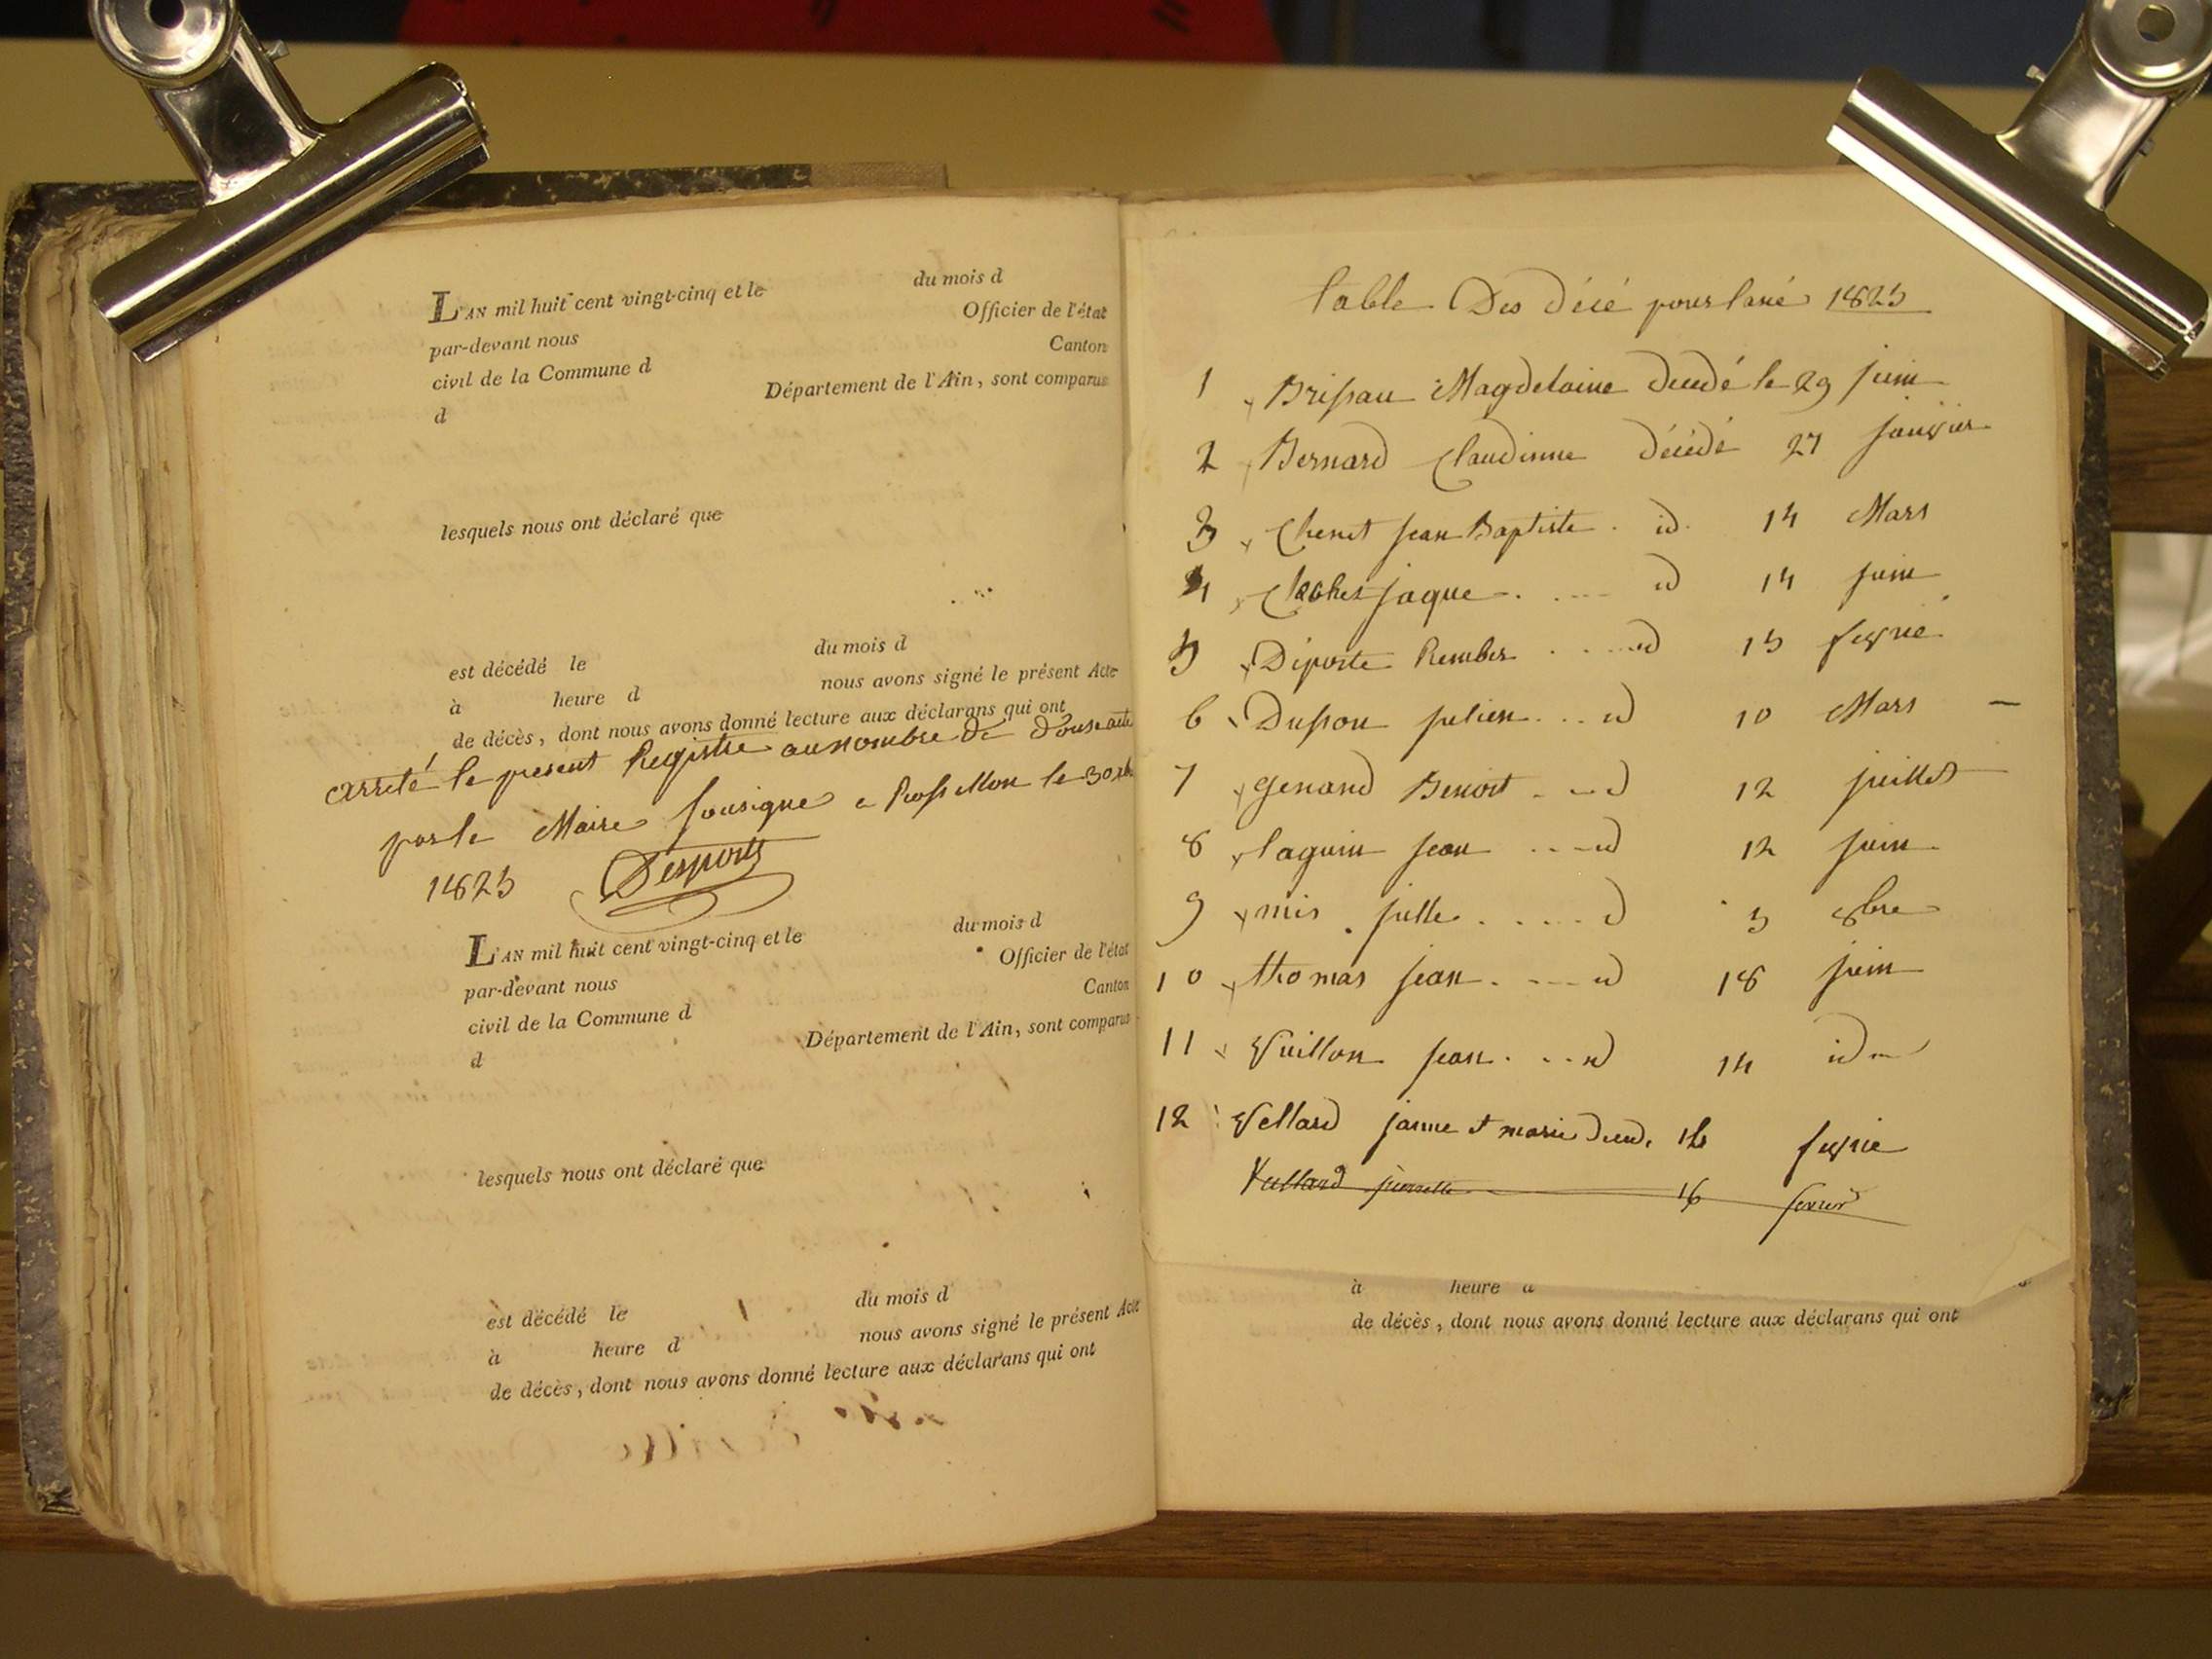 L'AN mil huit cent vingt-cinq et le du mois d
par-devant nous Officier de l'état
civil de la Commune d Canton
d Département de l'Ain, sont comparus
lesquels nous ont déclaré que
est décédé le du mois d
à heure d nous avons signé le présent Acte
de décès, dont nous avons donné lecture aux déclarans qui ont
arrété le present Registre au nombre de douse acte
par le Maire sousigne a Rossillon le 30
1825 Desports
L'AN mil huit cent vingt-cinq et le du mois d
par-devant nous Officier de l'état
civil de la Commune d Canton
d Département de l'Ain, sont comparus
lesquels nous ont déclaré que
est décédé le du mois d
à heure d nous avons signé le présent Acte
de décès, dont nous avons donné lecture aux déclarans qui ont
table Des décé pour lané 1825
1 Brissau Magdelaine decedé le 29 juin
2 Bernard Claudinne décédé 27 janvier
3 Chenet jean Baptiste . id. 14 Mars
4 jaque . .... id 14 juin
5 Déporte Rember . .... id 15 fevrié
6 Dusson julien ... id 10 Mars
7 genand Benoit ... id 12 juillet
8 laguin jean .... id 12 juin
9 mis julle ..... id 5 8bre
10 thomas jean . .... id 18 juin
11 Vuillon jean. ... id 14 id
12 Vellard janne et marie deced. 16 fevrie
Vullard pierrette 16 fevrier
à heure d
de décès, dont nous avons donné lecture aux déclarans qui ont